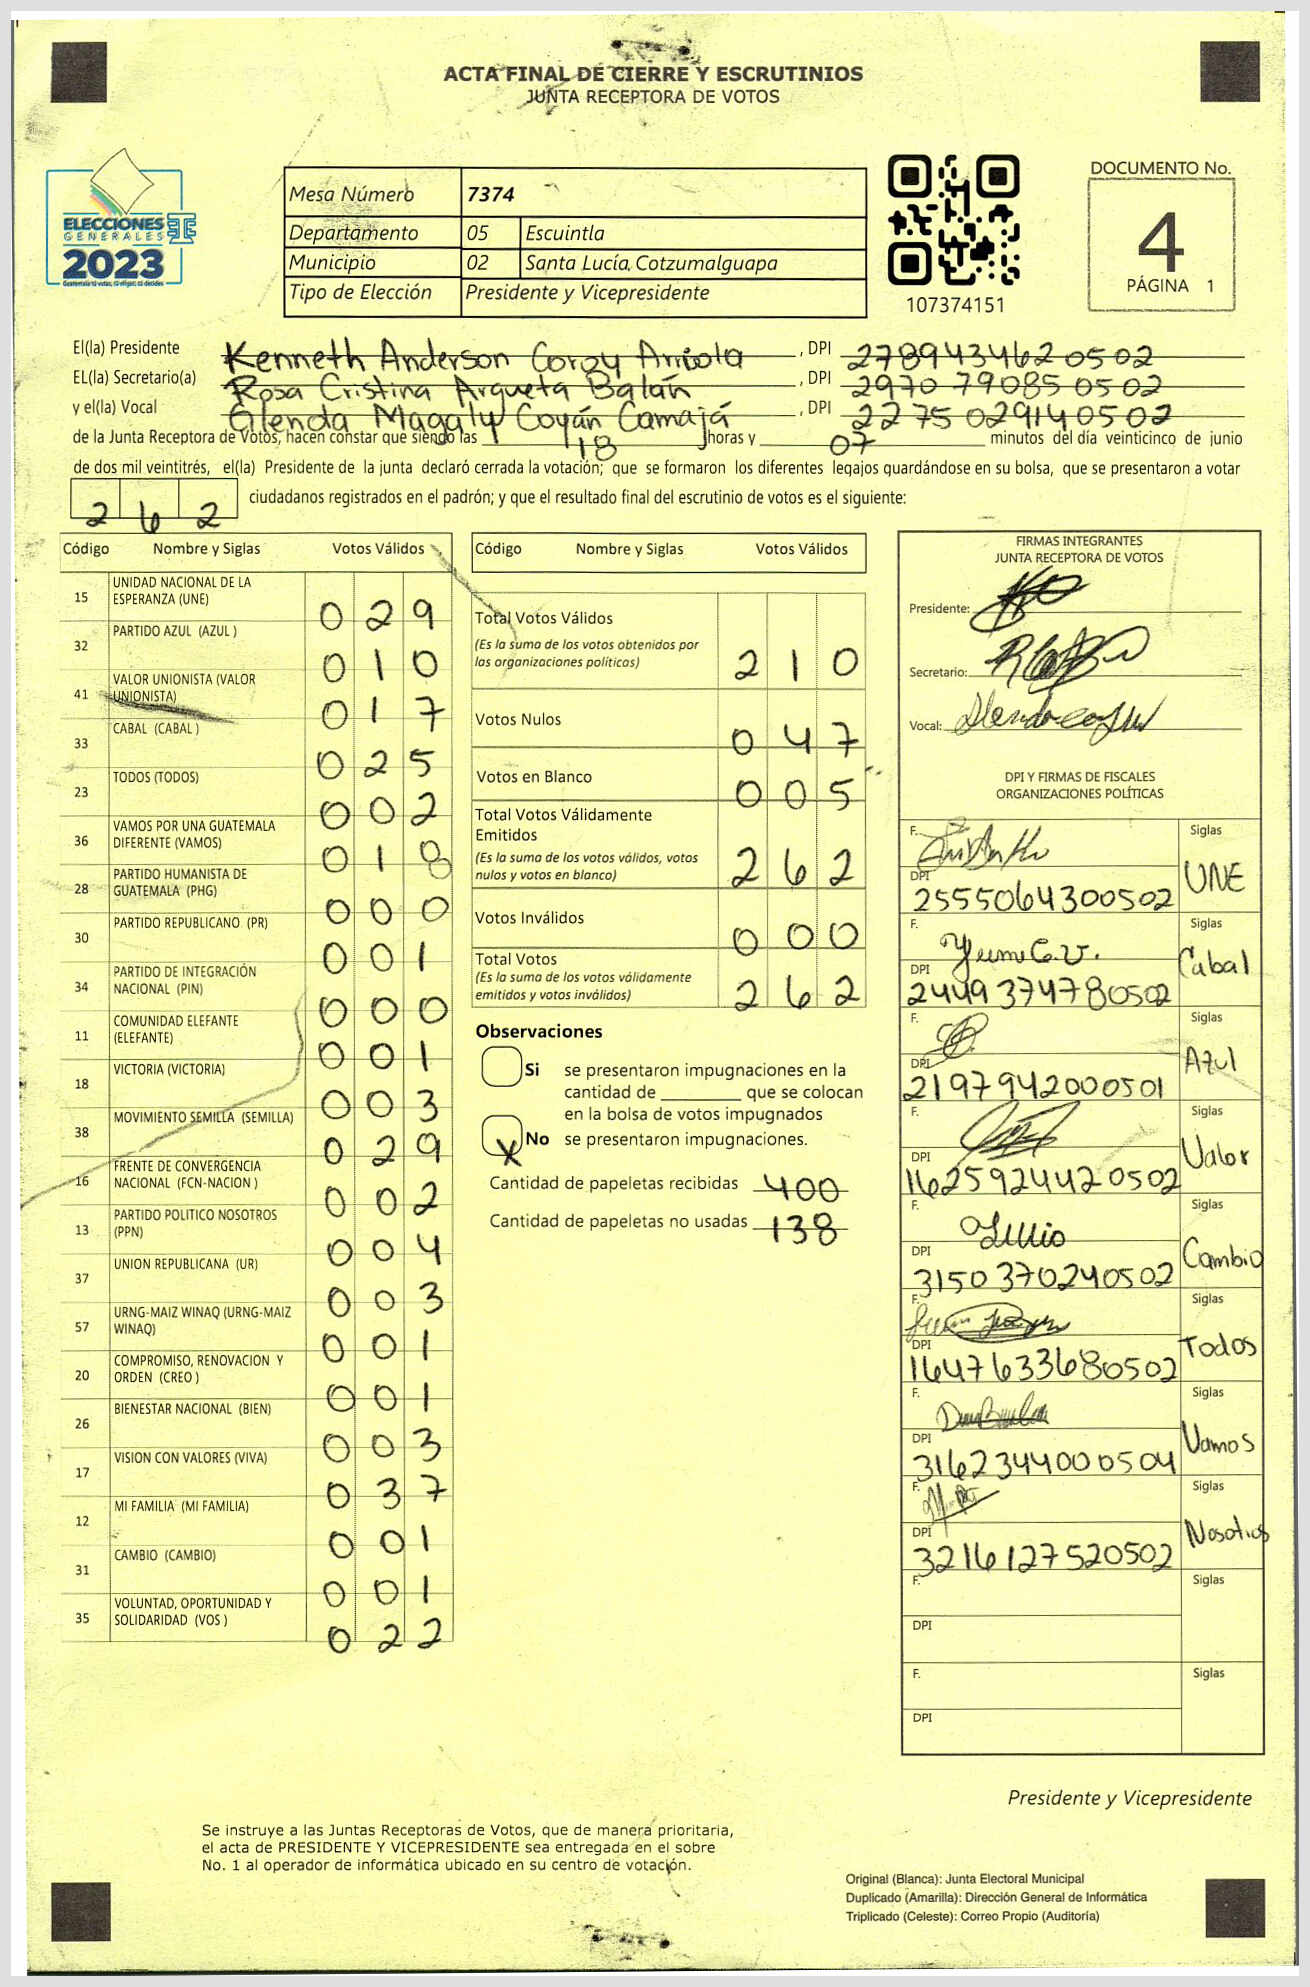 ACTA FINAL DE CIERRE Y ESCRUTINIOS
JUNTA RECEPTORA DE VOTOS
ELECCIONES
GENERALES
2023
Mesa Número 7374
Departamento 05 Escuintla
Municipio 02 Santa Lucía Cotzumalguapa
Tipo de Elección Presidente y Vicepresidente
107374151
DOCUMENTO No.
4
PÁGINA 1
El(la) Presidente Kenneth Anderson Coroy Arriola , DPI 2789434620502
EL(la) Secretario(a) Rosa Cristina Argueta Balán , DPI 2970790850502
y el(la) Vocal Glenda Magaly Coyán Camajá , DPI 2275029140502
de la Junta Receptora de Votos, hacen constar que siendo las 18 horas y 07 minutos del día veinticinco de junio
de dos mil veintitrés, el(la) Presidente de la junta declaró cerrada la votación; que se formaron los diferentes legajos guardándose en su bolsa, que se presentaron a votar
262 ciudadanos registrados en el padrón; y que el resultado final del escrutinio de votos es el siguiente:
Código Nombre y Siglas Votos Válidos
15 UNIDAD NACIONAL DE LA ESPERANZA (UNE) 029
32 PARTIDO AZUL (AZUL ) 010
41 VALOR UNIONISTA (VALOR UNIONISTA) 017
33 CABAL (CABAL ) 025
23 TODOS (TODOS) 002
36 VAMOS POR UNA GUATEMALA DIFERENTE (VAMOS) 018
28 PARTIDO HUMANISTA DE GUATEMALA (PHG) 000
30 PARTIDO REPUBLICANO (PR) 001
34 PARTIDO DE INTEGRACIÓN NACIONAL (PIN) 000
11 COMUNIDAD ELEFANTE (ELEFANTE) 001
18 VICTORIA (VICTORIA) 003
38 MOVIMIENTO SEMILLA (SEMILLA) 029
16 FRENTE DE CONVERGENCIA NACIONAL (FCN-NACION ) 002
13 PARTIDO POLITICO NOSOTROS (PPN) 004
37 UNION REPUBLICANA (UR) 003
57 URNG-MAIZ WINAQ (URNG-MAIZ WINAQ) 001
20 COMPROMISO, RENOVACION Y ORDEN (CREO ) 001
26 BIENESTAR NACIONAL (BIEN) 003
17 VISION CON VALORES (VIVA) 037
12 MI FAMILIA (MI FAMILIA) 001
31 CAMBIO (CAMBIO) 001
35 VOLUNTAD, OPORTUNIDAD Y SOLIDARIDAD (VOS ) 022
Código Nombre y Siglas Votos Válidos
Total Votos Válidos
(Es la suma de los votos obtenidos por
las organizaciones políticas) 210
Votos Nulos 047
Votos en Blanco 005
Total Votos Válidamente
Emitidos
(Es la suma de los votos válidos, votos
nulos y votos en blanco) 262
Votos Inválidos 000
Total Votos
(Es la suma de los votos válidamente
emitidos y votos inválidos) 262
Observaciones
Si se presentaron impugnaciones en la
cantidad de que se colocan
en la bolsa de votos impugnados
X No se presentaron impugnaciones.
Cantidad de papeletas recibidas 400
Cantidad de papeletas no usadas 138
FIRMAS INTEGRANTES
JUNTA RECEPTORA DE VOTOS
Presidente:
Secretario:
Vocal:
DPI Y FIRMAS DE FISCALES
ORGANIZACIONES POLÍTICAS
F. Siglas
DPI 2555064300502 UNE
F. Siglas
DPI 2449374780502 Cabal
F. Siglas
DPI 2197942000501 Azul
F. Siglas
DPI 1625924420502 Valor
F. Siglas
DPI 3150370240502 Cambio
F. Siglas
DPI 1647633680502 Todos
F. Siglas
DPI 3162344000504 Vamos
F. Siglas
DPI 3216127520502 Nosotros
F. Siglas
DPI
F. Siglas
DPI
Presidente y Vicepresidente
Se instruye a las Juntas Receptoras de Votos, que de manera prioritaria,
el acta de PRESIDENTE Y VICEPRESIDENTE sea entregada en el sobre
No. 1 al operador de informática ubicado en su centro de votación.
Original (Blanca): Junta Electoral Municipal
Duplicado (Amarilla): Dirección General de Informática
Triplicado (Celeste): Correo Propio (Auditoría)